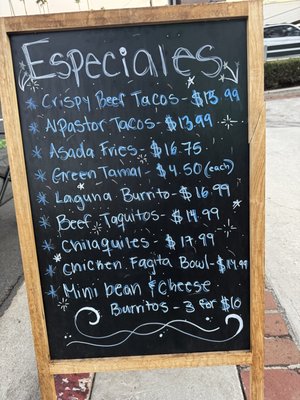 Especiales
Crispy Beef Tacos - $13.99
Al Pastor Tacos - $13.99
Asada Fries - $16.75
Green Tamal - $4.50 (each)
Laguna Burrito - $16.99
Beef Taquitos - $14.99
Chilaquiles - $17.99
Chicken Fagita Bowl - $17.99
Mini bean & Cheese
Burritos - 3 for $10